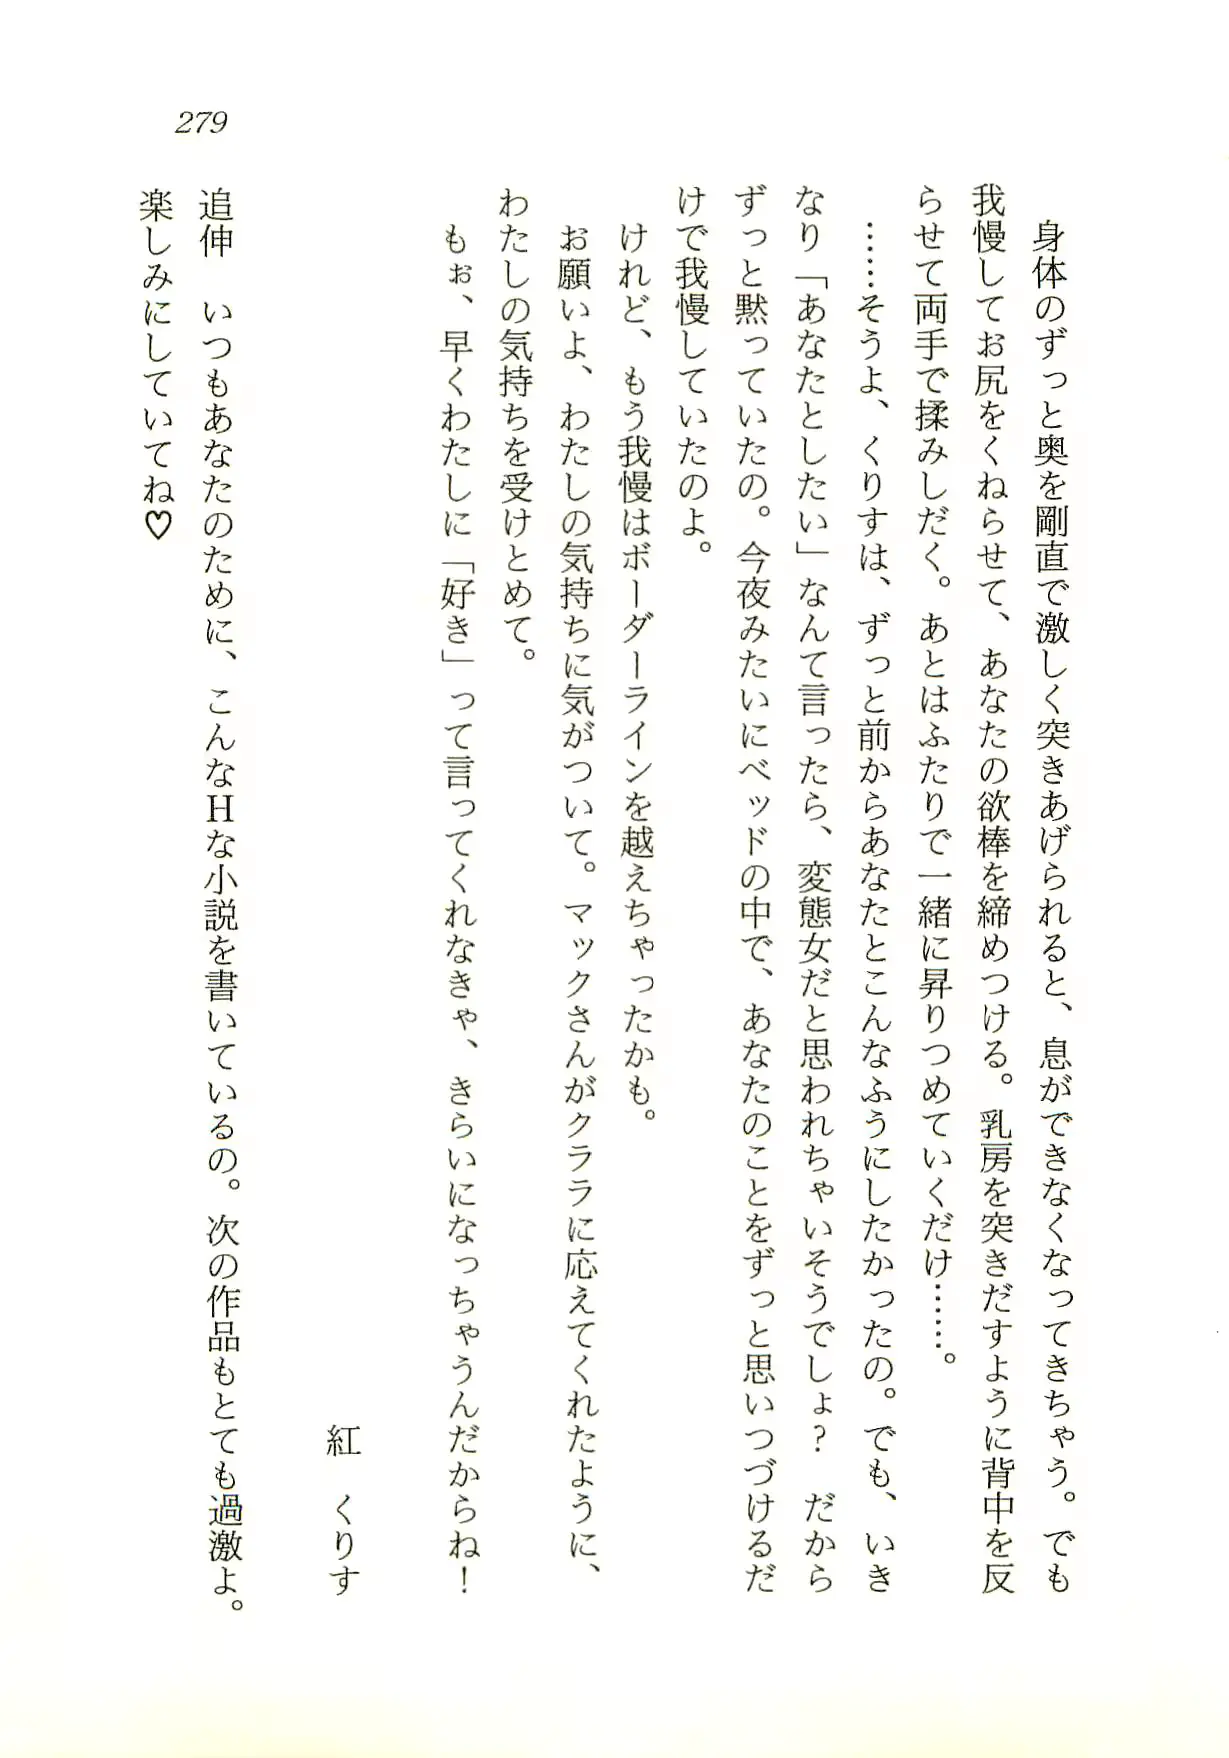 279
　身体のずっと奥を剛直で激しく突きあげられると、息ができなくなってきちゃう。でも
我慢してお尻をくねらせて、あなたの欲棒を締めつける。乳房を突きだすように背中を反
らせて両手で揉みしだく。あとはふたりで一緒に昇りつめていくだけ……。
　……そうよ、くりすは、ずっと前からあなたとこんなふうにしたかったの。でも、いき
なり「あなたとしたい」なんて言ったら、変態女だと思われちゃいそうでしょ？　だから
ずっと黙っていたの。今夜みたいにベッドの中で、あなたのことをずっと思いつづけるだ
けで我慢していたのよ。
　けれど、もう我慢はボーダーラインを越えちゃったかも。
　お願いよ、わたしの気持ちに気がついて。マックさんがクララに応えてくれたように、
わたしの気持ちを受けとめて。
　もぉ、早くわたしに「好き」って言ってくれなきゃ、きらいになっちゃうんだからね！
紅　くりす
追伸　いつもあなたのために、こんなHな小説を書いているの。次の作品もとても過激よ。
楽しみにしていてね♡